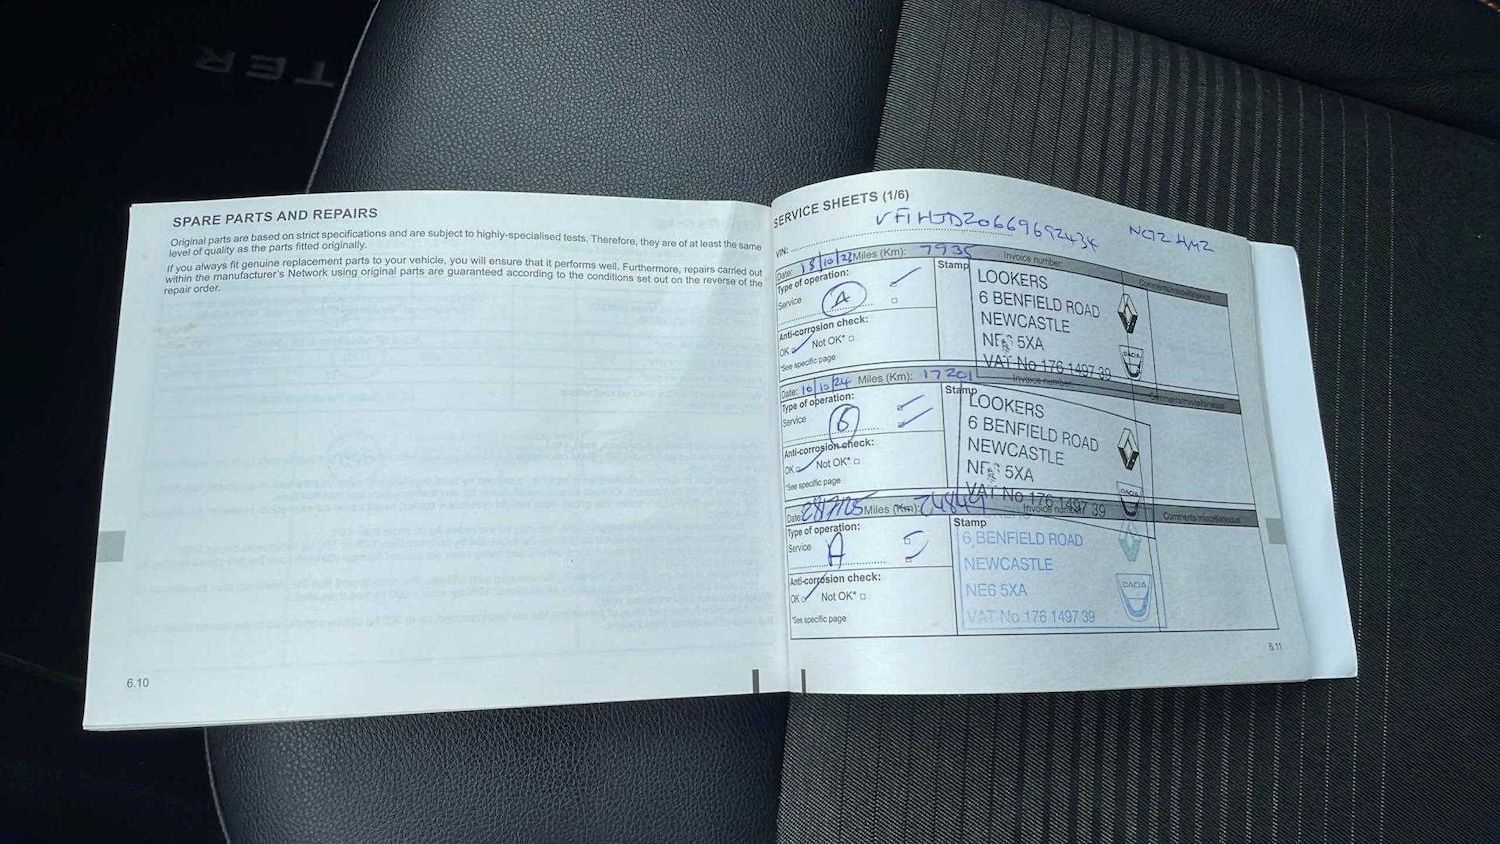 STER
SPARE PARTS AND REPAIRS
Original parts are based on strict specifications and are subject to highly-specialised tests. Therefore, they are of at least the same
level of quality as the parts fitted originally.
If you always fit genuine replacement parts to your vehicle, you will ensure that it performs well. Furthermore, repairs carried out
within the manufacturer's Network using original parts are guaranteed according to the conditions set out on the reverse of the
repair order.
6.10
SERVICE SHEETS (1/6)
VIN: VF1HJD20669692434 NG72 HMZ
Date: 13/10/23 Miles (Km): 7935 Invoice number: Comments/miscellaneous
Type of operation:
Service A
Anti-corrosion check:
OK Not OK*
*See specific page
Stamp
LOOKERS
6 BENFIELD ROAD
NEWCASTLE
NE6 5XA
VAT No 176 1497 39
DACIA
Date: 10/10/24 Miles (Km): 17201 Invoice number: Comments/miscellaneous
Type of operation:
Service B
Anti-corrosion check:
OK Not OK*
*See specific page
Stamp
LOOKERS
6 BENFIELD ROAD
NEWCASTLE
NE6 5XA
VAT No 176 1497 39
DACIA
Date: Miles (Km): 24849 Invoice number: Comments/miscellaneous
Type of operation:
Service A
Anti-corrosion check:
OK Not OK*
*See specific page
Stamp
6 BENFIELD ROAD
NEWCASTLE
NE6 5XA
VAT No 176 1497 39
DACIA
6.11